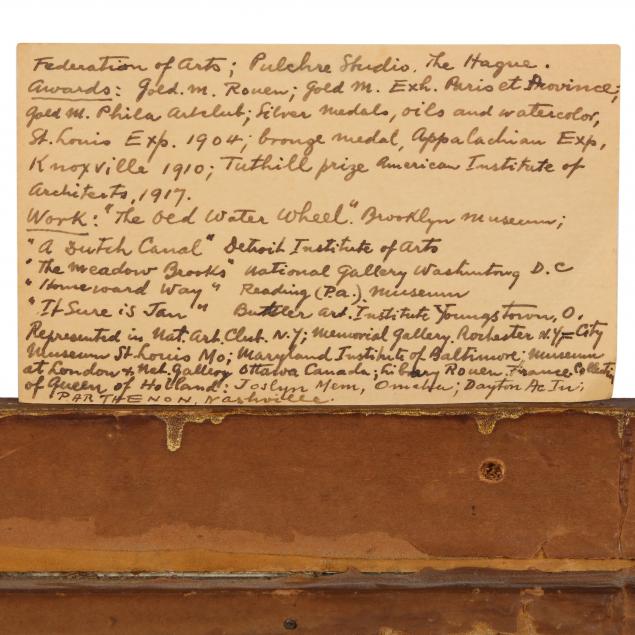 Federation of Arts; Pulchre Studio. The Hague.
Awards: Gold. m. Rouen; Gold M. Exh. Paris et Province;
Gold M. Phila Artclub; Silver medals, oils and watercolor,
St. Louis Exp. 1904; bronze medal, Appalachian Exp,
Knoxville 1910; Tuthill prize American Institute of
Architects, 1917.
Work: "The Old Water Wheel". Brooklyn Museum;
"A Dutch Canal" Detroit Institute of Arts
"The Meadow Brooks" National Gallery Washintong D.C
"Homeward Way" Reading (Pa.) Museum
"It Sure is Jan" Buttler Art. Institute Youngstown, O.
Represented in Nat. Art. Club. N.Y; Memorial Gallery. Rochester N.Y= City
Museum St. Louis Mo; Maryland Institute of Baltimore; Museum
at London & Nat. Gallery Ottawa Canada; Library Rouen. France Collection
of Queen of Holland: Joslyn Mem, Omaha; Dayton Ac In;
PARTHENON, Nashville.